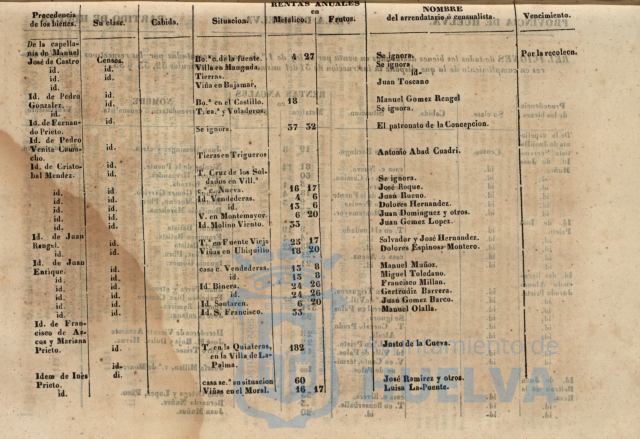 RENTAS ANUALES
Procedencia de los bienes. Su clase. Cabida. Situacion. en Metálico. Frutos. NOMBRE del arrendatario ó censualista. Vencimiento.
De la capella-
nía de Manuel Bo.º c. de la fuente. 4 27 Se ignora. Por la recolecn.
José de Castro Censos. Villa en Manguda. Se ignora.
id. id. Tierras. id.
id. id. Viña en Bajamar, Juan Toscano
Id. de Pedro
Gonzalez. id. Bo.ª en el Castillo. 18 Manuel Gomez Rengel
id. id. T. en.ª y Voladeros. Se ignora.
Id. de Fernan-
do Prieto. id. Se ignora. 37 32 El patronato de la Concepcion.
Id. de Pedro
Venite Camu-
cho. id. Tieras en Trigueros Antoñio Abad Cuadri.
Id. de Cristo-
bal Mendez. id. T. Cruz de los Sol-
dados en Vill.ª Se ignora.
id. id. c. Nueva. 16 17 José Roque.
id. id. Id. Vendederas. 4 6 Juan Bueno.
id. id. id. 13 6 Dolores Hernandez.
id. id. V. en Montemayor. 6 20 Juan Dominguez y otros.
id. id. Id. Molino Viento. 33 Juan Gomez Lopez.
Id. de Juan
Rengel. id. T.ª en Fuente Vieja 25 17 Salvador y José Hernandez.
id. id. Viñas en Ubiquillo 18 20 Dolores Espinosa Montero.
Id. de Juan
Enrique. id. casa c. Vendederas. 13 8 Manuel Muñoz.
id. id. id. 13 8 Miguel Toledano.
id. id. Id. Binera. 24 26 Francisco Millan.
id. id. id. 24 26 Gertrudiz Barrera.
id. id. Id. Santaren. 6 20 Juan Gomez Barco.
id. id. Id. S. Francisco. 33 Manuel Olalla.
Id. de Fran-
cisco de Ar-
cos y Mariana
Prieto. id. T. en la Quiateras, 182 Justo de la Cueva.
en la Villa de La-
id. Palma.
Idem de Inés di.
Prieto. casa se.ª su situacion 60 José Ramirez y otros.
id. Viñas en el Moral. 16 17 Luisa La-Puente.
Ayuntamiento de
HUELVA